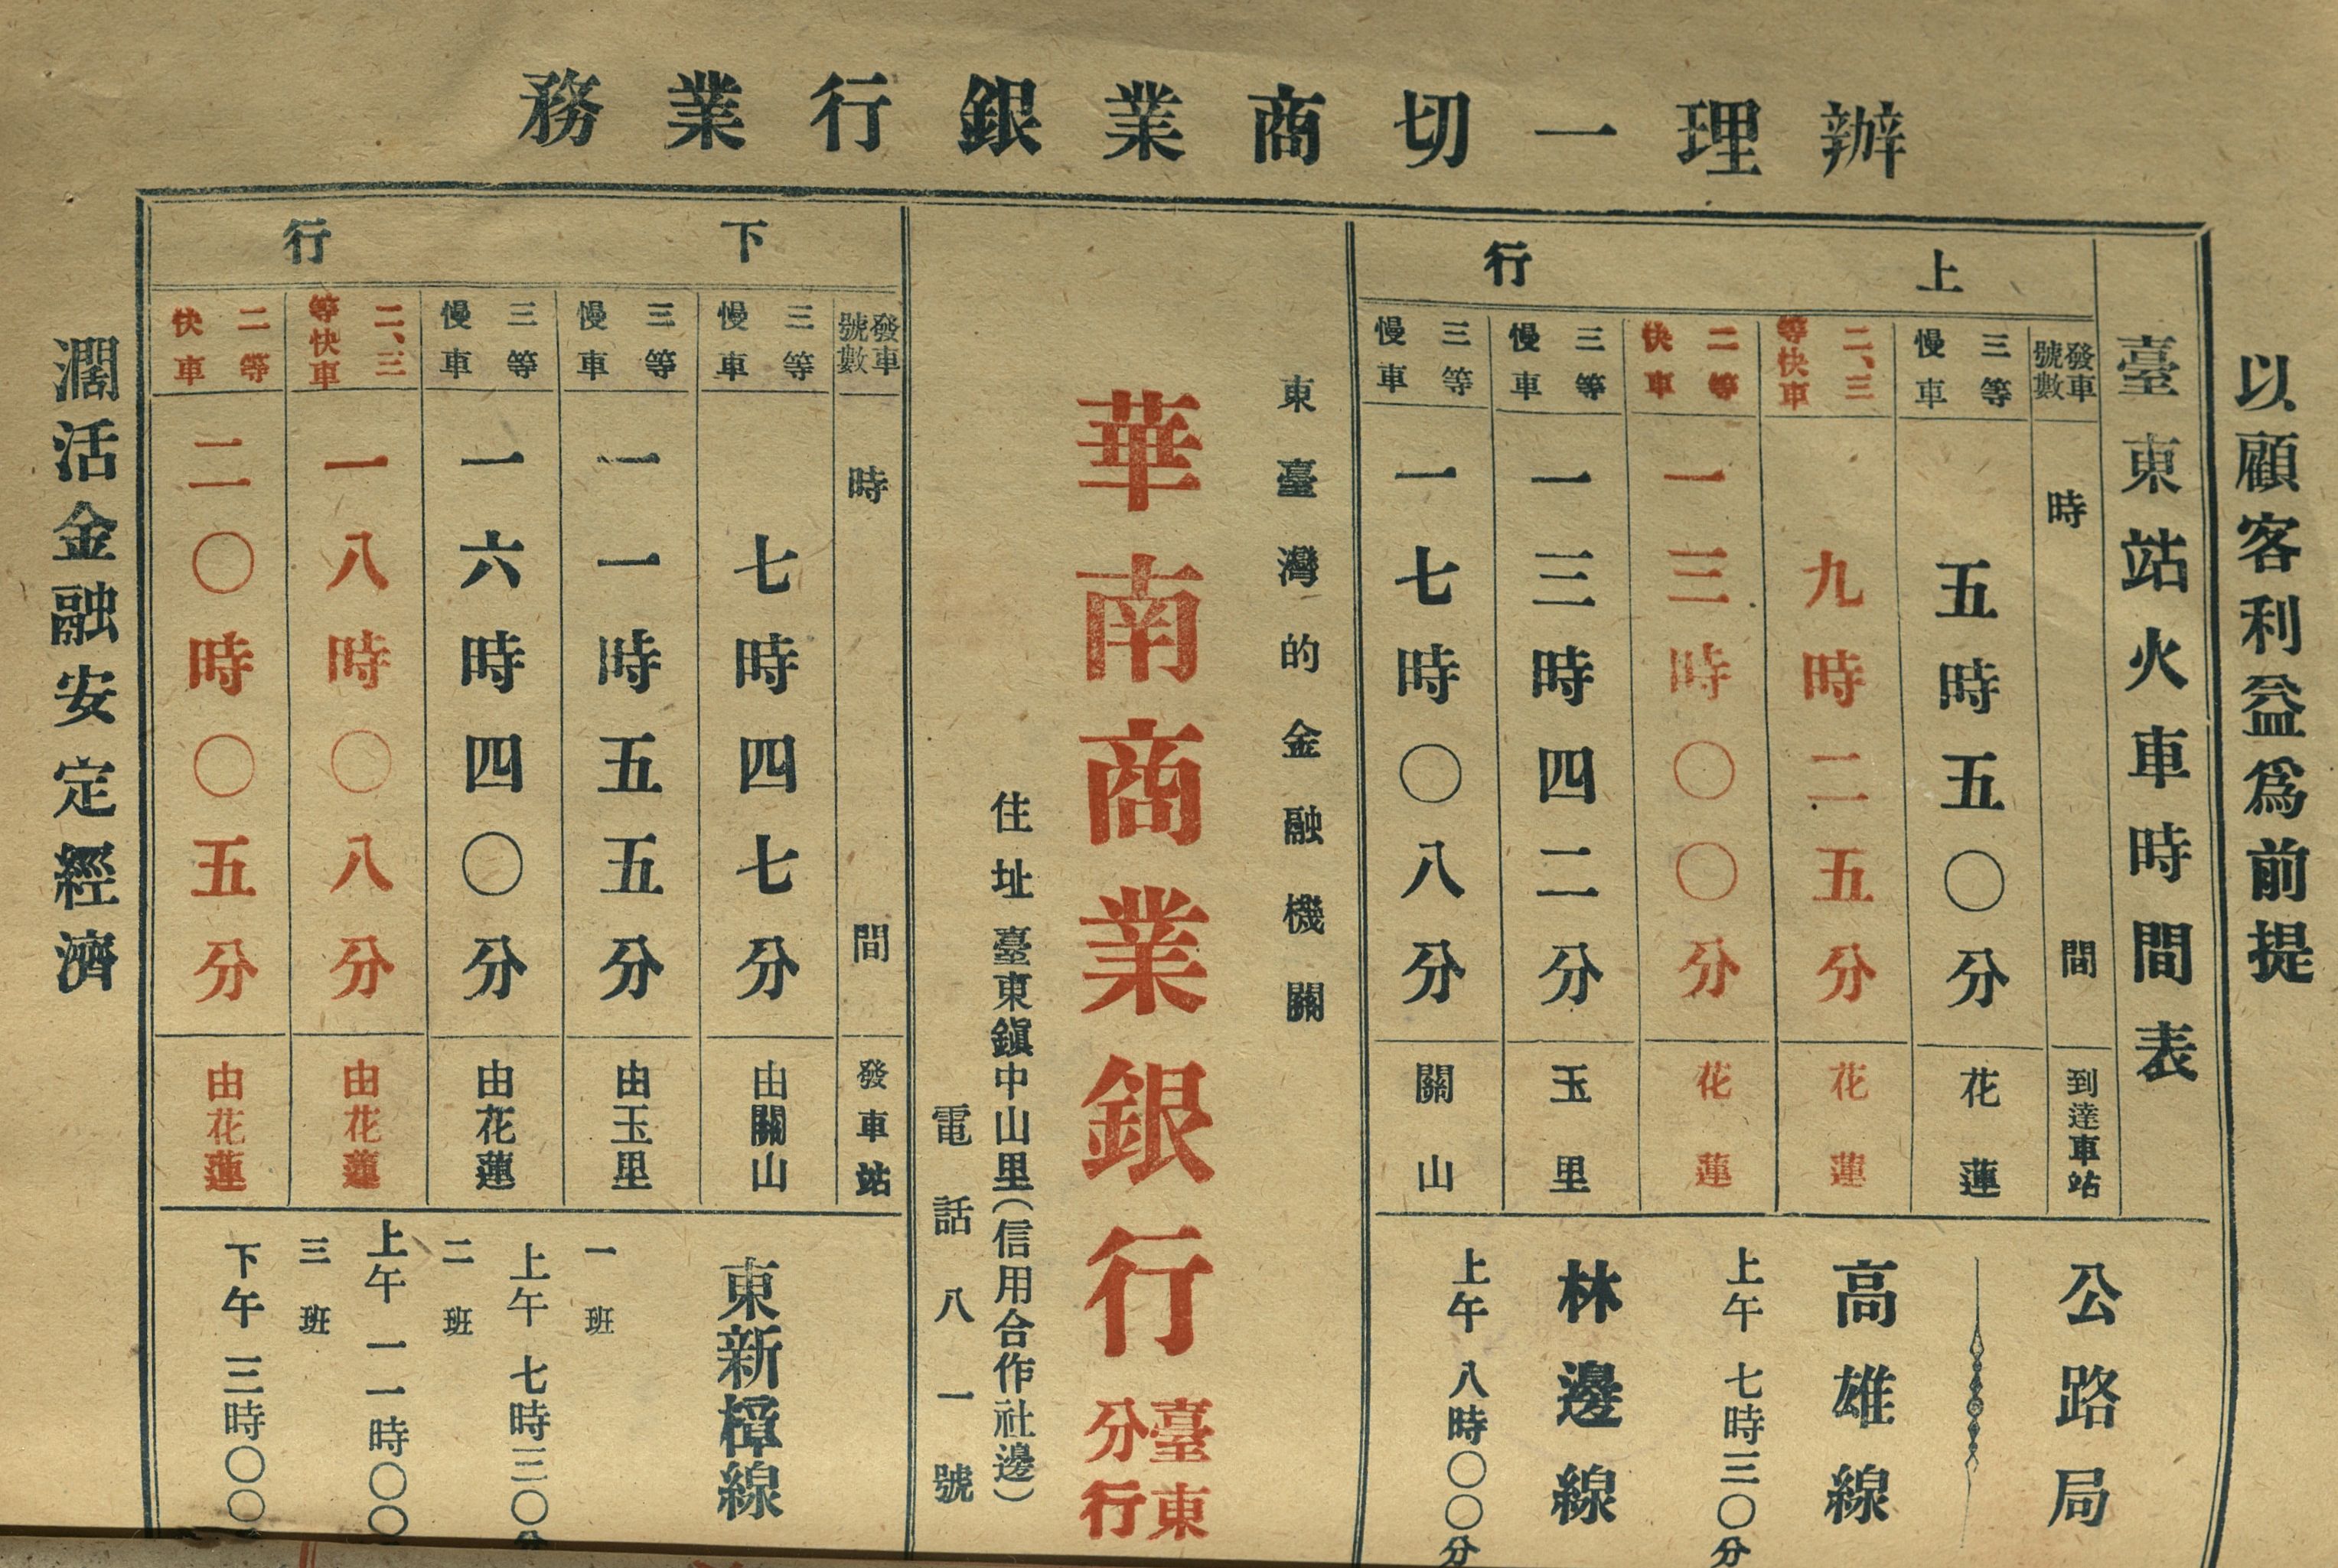 辦理一切商業銀行業務
以顧客利益爲前提
臺東站火車時間表
上行
發車號數 時間 到達車站
三等慢車 五時五〇分 花蓮
二、三等快車 九時二五分 花蓮
二等快車 一三時〇〇分 花蓮
三等慢車 一三時四二分 玉里
三等慢車 一七時〇八分 關山
公路局
高雄線
上午 七時三〇分
林邊線
上午 八時〇〇分
東臺灣的金融機關
華南商業銀行臺東分行
住址 臺東鎭中山里(信用合作社邊)
電話八一號
下行
發車號數 時間 發車站
三等慢車 七時四七分 由關山
三等慢車 一一時五五分 由玉里
三等慢車 一六時四〇分 由花蓮
二、三等快車 一八時〇八分 由花蓮
二等快車 二〇時〇五分 由花蓮
東新樟線
一班
上午 七時三〇分
二班
上午 一一時〇〇
三班
下午 三時〇〇
濶活金融安定經濟